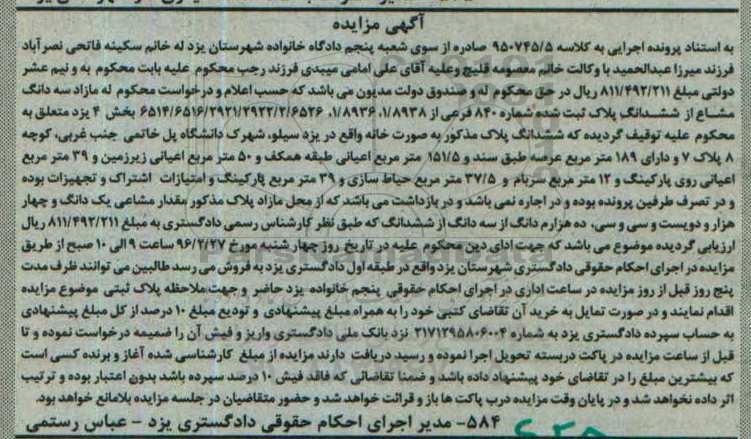 آگهی مزایده
به استناد پرونده اجرایی به کلاسه ۹۵۰۷۴۵/۵ صادره از سوی شعبه پنجم دادگاه خانواده شهرستان یزد له خانم سکینه فاتحی نصرآباد
فرزند میرزا عبدالحمید با وکالت خانم معصومه قلیچ وعلیه آقای علی امامی میبدی فرزند رجب محکوم علیه بابت محکوم به و نیم عشر
دولتی مبلغ ۸۱۱/۴۹۲/۲۱۱ ریال در حق محکوم له و صندوق دولت مدیون می باشد که حسب اعلام و درخواست محکوم له مازاد سه دانگ
مشاع از ششدانگ پلاک ثبت شده شماره ۸۴۰ فرعی از ۱/۸۹۳۸، ۱/۸۹۳۶، ۶۵۱۴/۶۵۱۶/۲۹۲۱/۲۹۲۲/۲/۶۵۲۶ بخش ۴ یزد متعلق به
محکوم علیه توقیف گردیده که ششدانگ پلاک مذکور به صورت خانه واقع در یزد سیلو، شهرک دانشگاه پل خاتمی جنب غربی، کوچه
۸ پلاک ۷ و دارای ۱۸۹ متر مربع عرصه طبق سند و ۱۵۱/۵ متر مربع اعیانی طبقه همکف و ۵۰ متر مربع اعیانی زیرزمین و ۳۹ متر مربع
اعیانی روی پارکینگ و ۱۲ متر مربع سربام و ۳۷/۵ متر مربع حیاط سازی و ۳۹ متر مربع پارکینگ و امتیازات اشتراک و تجهیزات بوده
و در تصرف طرفین پرونده بوده و در اجاره نمی باشد و در بازداشت می باشد که از محل مازاد پلاک مذکور مقدار مشاعی یک دانگ و چهار
هزار و دویست و سی و سی، ده هزارم دانگ از سه دانگ از ششدانگ که طبق نظر کارشناس رسمی دادگستری به مبلغ ۸۱۱/۴۹۲/۲۱۱ ریال
ارزیابی گردیده موضوع می باشد که جهت ادای دین محکوم علیه در تاریخ روز چهار شنبه مورخ ۹۶/۲/۲۷ ساعت ۹ الی ۱۰ صبح از طریق
مزایده در اجرای احکام حقوقی دادگستری شهرستان یزد واقع در طبقه اول دادگستری یزد به فروش می رسد طالبین می توانند ظرف مدت
پنج روز قبل از روز مزایده در ساعت اداری در اجرای احکام حقوقی پنجم خانواده یزد حاضر و جهت ملاحظه پلاک ثبتی موضوع مزایده
اقدام نمایند و در صورت تمایل به خرید آن تقاضای کتبی خود را به همراه مبلغ پیشنهادی و تودیع مبلغ ۱۰ درصد از کل مبلغ پیشنهادی
به حساب سپرده دادگستری یزد به شماره ۲۱۷۱۲۹۵۸۰۶۰۰۴ نزد بانک ملی دادگستری واریز و فیش آن را ضمیمه درخواست نموده و تا
قبل از ساعت مزایده در پاکت دربسته تحویل اجرا نموده و رسید دریافت دارند مزایده از مبلغ کارشناسی شده آغاز و برنده کسی است
که بیشترین مبلغ را در تقاضای خود پیشنهاد داده باشد و ضمنا تقاضائی که فاقد فیش ۱۰ درصد سپرده باشد بدون اعتبار بوده و ترتیب
اثر داده نخواهد شد و در پایان وقت مزایده درب پاکت ها باز و قرائت خواهد شد و حضور متقاضیان در جلسه مزایده بلامانع خواهد بود.
۵۸۴- مدیر اجرای احکام حقوقی دادگستری یزد - عباس رستمی